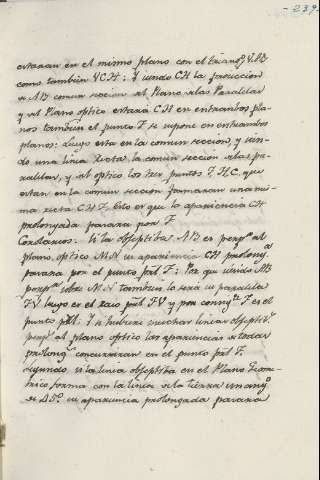 -239-
estaran en el mismo plano con el triang.º YAB
como tambien YCH: Y siendo CH la
de AB comun seccion al Plano de las Paralelas
y al Plano optico estará CH en entrambos pla-
nos tambien el punto F se supone en entrambos
planos: Luego esta en la comun seccion, y sien-
do una linea recta la comun seccion a las pa-
ralelas, y al optico los tres puntos F, H, C, que
estan en la comun seccion formaran una mis-
ma recta CHF. Esto es que la apariencia CH
prolongada pasara por F.
Corolarios. Si la obseptiba AB es perp.ª al
plano optico MN su apariencia CH prolong.ª
pasara por el punto p.al F: Por que siendo AB
perp.ar sobre MN tambien lo sera su paralela
FY luego es el raio p.al FY y por F es el
punto p.al: Y si hubiera muchas lineas obseptib.s
perp.s al plano optico las apariencias de todas
prolong concurriran en el punto p.al F.
Segundo si la linea obseptiba en el Plano Geome-
trico, forma con la linea de la tierra un ang.º
de 45.º su apariencia prolongada pasara